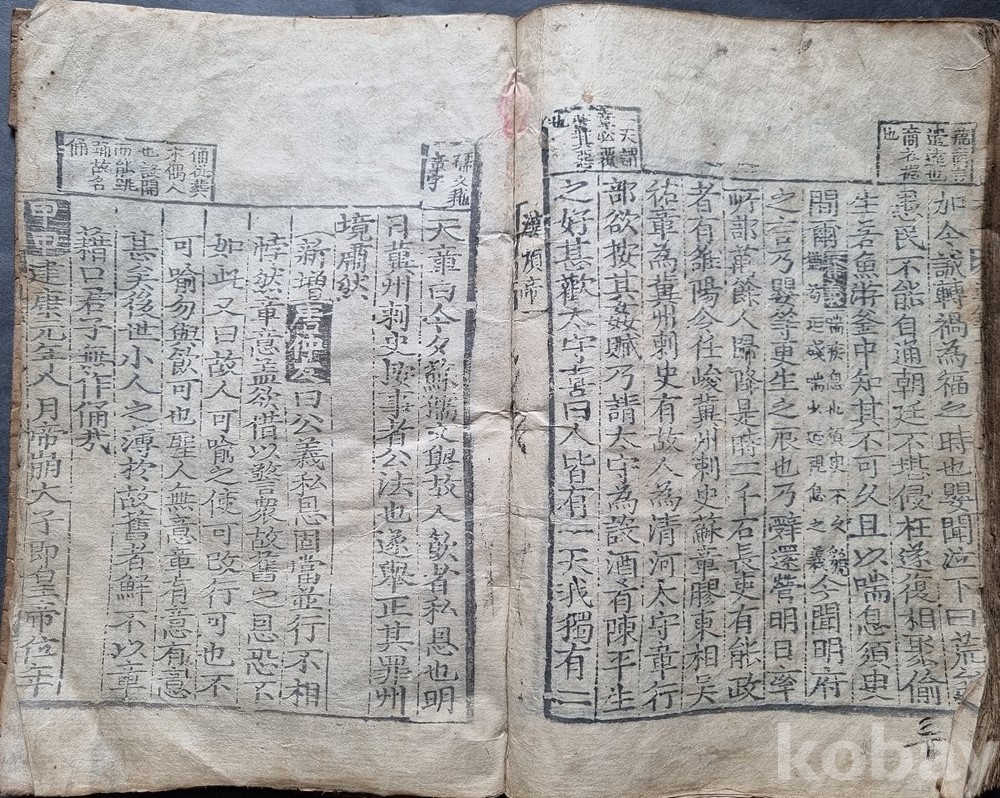 如今誠轉禍為福之時也嬰聞泣下曰荒
愚民不能自通朝廷不堪侵枉遂復相聚偷
生若魚游釜中知其不可久且以喘息須臾
間爾
喘疾息也須臾不久貌
今聞明府
之言乃嬰等更生之辰也乃辭還營明日率
所部萬餘人歸降是時二千石長吏有能政
者有雒陽令任峻冀州刺史蘇章膠東相吳
祐章為冀州刺史有故人為清河太守章行
部欲按其姦贓乃請太守為設酒肴陳平生
之好甚歡太守喜曰人皆有一天我獨有二
一天謂
章必覆
其惡
也
漢順帝
三十
天章曰今夕蘇孺文與故人飲者私恩也明
日冀州刺史按事者公法也遂舉正其罪州
境肅然
孺文
章字
新增
曰公義私恩固當並行不相
悖然章意盖欲借以警衆故舊之恩恐不
如此又曰故人可喻之使可改行可也不
可喻勿與飲可也聖人無意章有意有意
甚矣後世小人之薄於故舊者鮮不以章
藉口君子無作俑哉
俑從葬
木偶人
也設関
而能跳
踊故名
俑
甲申建康元年八月帝崩太子即皇帝位年
kobay